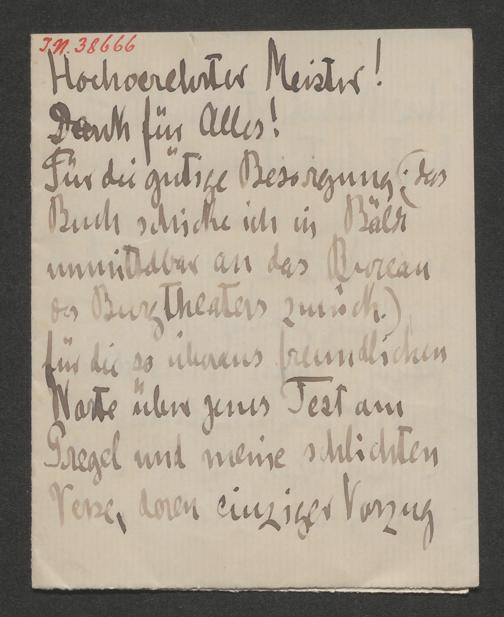 J.N. 38666
Hochverehrter Meister!
Dank für Alles!
Für die gütige Besorgung (: das
Buch schicke ich in Bälde
unmittelbar an das Bureau
des Burgtheaters zurück.)
für die so überaus freundlichen
Worte über jenes Fest am
Pregel und meine schlichten
Verse, deren einziger Vorzug